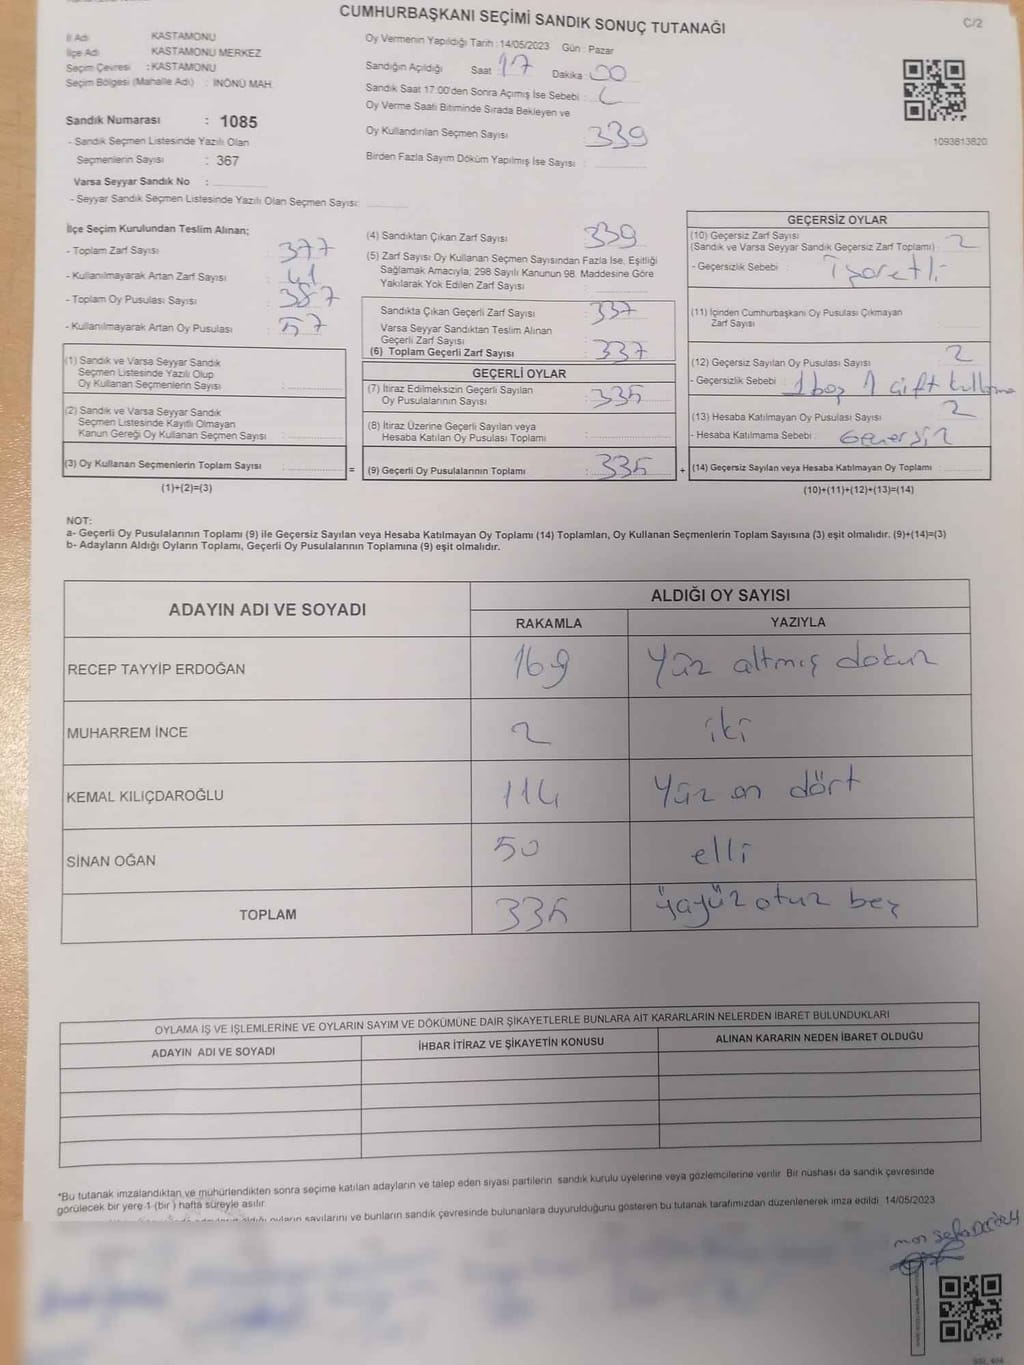 CUMHURBAŞKANI SEÇİMİ SANDIK SONUÇ TUTANAĞI
C/2
İl Adı KASTAMONU
İlçe Adı KASTAMONU MERKEZ
Seçim Çevresi : KASTAMONU
Seçim Bölgesi (Mahalle Adı) : İNÖNÜ MAH.
Sandık Numarası : 1085
- Sandık Seçmen Listesinde Yazılı Olan
Seçmenlerin Sayısı : 367
Varsa Seyyar Sandık No :
- Seyyar Sandık Seçmen Listesinde Yazılı Olan Seçmen Sayısı:
Oy Vermenin Yapıldığı Tarih : 14/05/2023 Gün : Pazar
Sandığın Açıldığı Saat : 17 Dakika : 00
Sandık Saat 17:00'den Sonra Açımış İse Sebebi :
Oy Verme Saati Bitiminde Sırada Bekleyen ve
Oy Kullandırılan Seçmen Sayısı 339
Birden Fazla Sayım Döküm Yapılmış İse Sayısı :
1093813820
İlçe Seçim Kurulundan Teslim Alınan;
- Toplam Zarf Sayısı : 377
- Kullanılmayarak Artan Zarf Sayısı : 41
- Toplam Oy Pusulası Sayısı : 387
- Kullanılmayarak Artan Oy Pusulası : 57
(1) Sandık ve Varsa Seyyar Sandık
Seçmen Listesinde Yazılı Olup
Oy Kullanan Seçmenlerin Sayısı :
(2) Sandık ve Varsa Seyyar Sandık
Seçmen Listesinde Kayıtlı Olmayan
Kanun Gereği Oy Kullanan Seçmen Sayısı :
(3) Oy Kullanan Seçmenlerin Toplam Sayısı :
(1)+(2)=(3)
=
(4) Sandıktan Çıkan Zarf Sayısı : 339
(5) Zarf Sayısı Oy Kullanan Seçmen Sayısından Fazla İse, Eşitliği
Sağlamak Amacıyla, 298 Sayılı Kanunun 98. Maddesine Göre
Yakılarak Yok Edilen Zarf Sayısı :
Sandıkta Çıkan Geçerli Zarf Sayısı : 337
Varsa Seyyar Sandıktan Teslim Alınan
Geçerli Zarf Sayısı :
(6) Toplam Geçerli Zarf Sayısı : 337
GEÇERLİ OYLAR
(7) İtiraz Edilmeksizin Geçerli Sayılan
Oy Pusulalarının Sayısı : 335
(8) İtiraz Üzerine Geçerli Sayılan veya
Hesaba Katılan Oy Pusulası Toplamı :
(9) Geçerli Oy Pusulalarının Toplamı : 335
+
GEÇERSİZ OYLAR
(10) Geçersiz Zarf Sayısı
(Sandık ve Varsa Seyyar Sandık Geçersiz Zarf Toplamı) : 2
- Geçersizlik Sebebi : İşaretli
(11) İçinden Cumhurbaşkanı Oy Pusulası Çıkmayan
Zarf Sayısı
(12) Geçersiz Sayılan Oy Pusulası Sayısı : 2
- Geçersizlik Sebebi : 1 boş 1 çift kullanma
(13) Hesaba Katılmayan Oy Pusulası Sayısı : 2
- Hesaba Katılmama Sebebi : Geçersiz
(14) Geçersiz Sayılan veya Hesaba Katılmayan Oy Toplamı :
(10)+(11)+(12)+(13)=(14)
NOT:
a- Geçerli Oy Pusulalarının Toplamı (9) ile Geçersiz Sayılan veya Hesaba Katılmayan Oy Toplamı (14) Toplamları, Oy Kullanan Seçmenlerin Toplam Sayısına (3) eşit olmalıdır. (9)+(14)=(3)
b- Adayların Aldığı Oyların Toplamı, Geçerli Oy Pusulalarının Toplamına (9) eşit olmalıdır.
ADAYIN ADI VE SOYADI ALDIĞI OY SAYISI
RAKAMLA YAZIYLA
RECEP TAYYİP ERDOĞAN 169 yüz altmış dokuz
MUHARREM İNCE 2 iki
KEMAL KILIÇDAROĞLU 114 yüz on dört
SİNAN OĞAN 50 elli
TOPLAM 335 üçyüz otuz beş
OYLAMA İŞ VE İŞLEMLERİNE VE OYLARIN SAYIM VE DÖKÜMÜNE DAİR ŞİKAYETLERLE BUNLARA AİT KARARLARIN NELERDEN İBARET BULUNDUKLARI
ADAYIN ADI VE SOYADI İHBAR İTİRAZ VE ŞİKAYETİN KONUSU ALINAN KARARIN NEDEN İBARET OLDUĞU
*Bu tutanak imzalandıktan ve mühürlendikten sonra seçime katılan adayların ve talep eden siyasi partilerin sandık kurulu üyelerine veya gözlemcilerine verilir. Bir nüshası da sandık çevresinde
görülecek bir yere 1 (bir ) hafta süreyle asılır.
oyların sayılarını ve bunların sandık çevresinde bulunanlara duyurulduğunu gösteren bu tutanak tarafımızdan düzenlenerek imza edildi. 14/05/2023